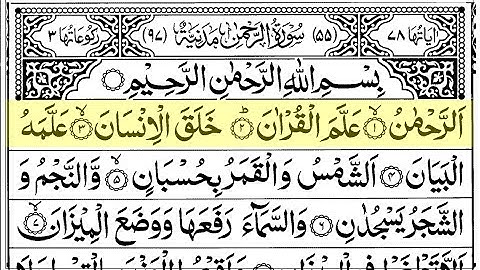 اٰيَاتُهَا ٧٨ (٥٥) سُوْرَةُ الرَّحْمٰنِ مَدَنِيَّةٌ (٩٧) رُكُوْعَاتُهَا ٣
بِسْمِ اللهِ الرَّحْمٰنِ الرَّحِيْمِ
اَلرَّحْمٰنُ ۙ﴿١﴾ عَلَّمَ الْقُرْاٰنَ ؕ﴿٢﴾ خَلَقَ الْاِنْسَانَ ۙ﴿٣﴾ عَلَّمَهُ
الْبَيَانَ ﴿٤﴾ اَلشَّمْسُ وَالْقَمَرُ بِحُسْبَانٍ ۙ﴿٥﴾ وَّالنَّجْمُ وَ
الشَّجَرُ يَسْجُدٰنِ ﴿٦﴾ وَالسَّمَآءَ رَفَعَهَا وَوَضَعَ الْمِيْزَانَ ۙ﴿٧﴾